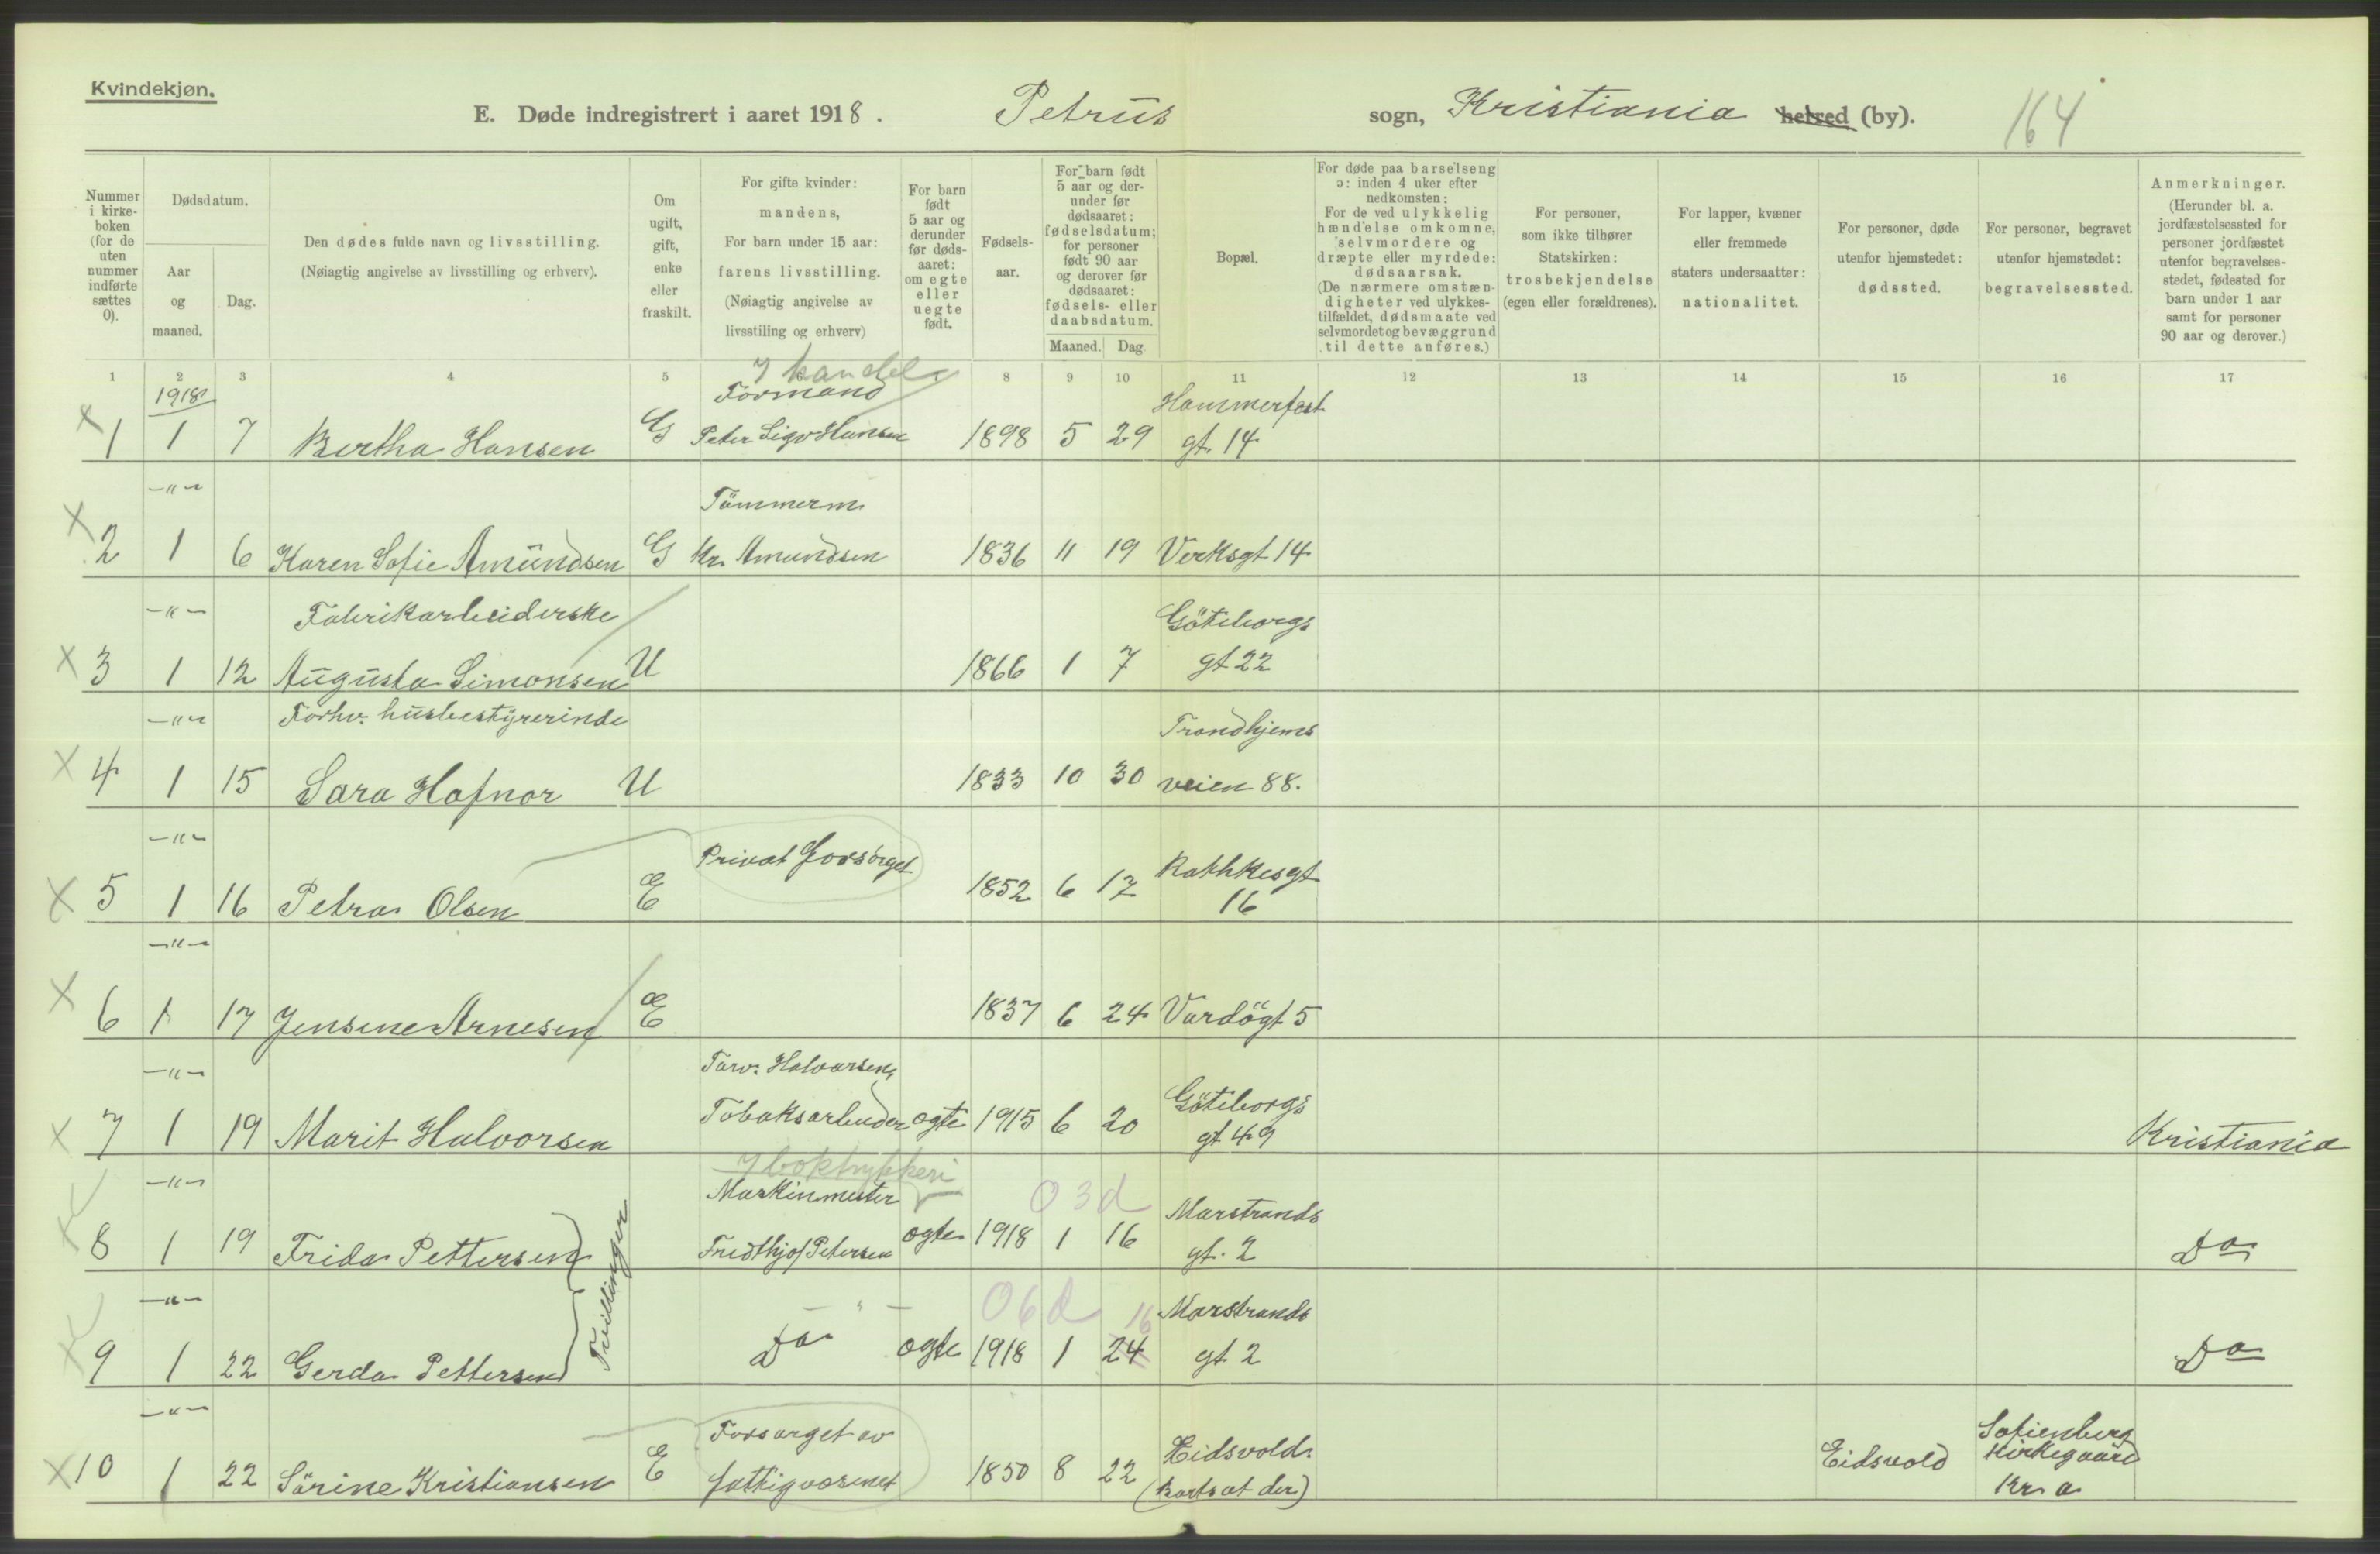 Kvindekjøn.
E. Døde indregistrert i aaret 1918. Petrus sogn, Kristiania herred (by). 164
Nummer i kirke-boken (for de uten nummer indførte sættes 0).
Dødsdatum.
Aar og maaned.
Dag.
Den dødes fulde navn og livsstilling.
(Nøiagtig angivelse av livsstilling og erhverv).
Om ugift, gift, enke eller fraskilt.
For gifte kvinder: mandens,
For barn under 15 aar: farens livsstilling.
(Nøiagtig angivelse av livsstiling og erhverv)
For barn født 5 aar og derunder før døds-aaret: om egte eller uegte født.
Fødsels-aar.
For barn født 5 aar og der-under før dødsaaret: fødselsdatum; for personer født 90 aar og derover før dødsaaret: fødsels- eller daabsdatum.
Maaned. Dag.
Bopæl.
For døde paa barselseng ɔ: inden 4 uker efter nedkomsten:
For de ved ulykkelig hændelse omkomne, selvmordere og dræpte eller myrdede: dødsaarsak.
(De nærmere omstæn-digheter ved ulykkes-tilfældet, dødsmaate ved selvmordet og bevæggrund til dette anføres.)
For personer, som ikke tilhører Statskirken: trosbekjendelse (egen eller forældrenes).
For lapper, kvæner eller fremmede staters undersaatter: nationalitet.
For personer, døde utenfor hjemstedet: dødssted.
For personer, begravet utenfor hjemstedet: begravelsessted.
Anmerkninger.
(Herunder bl. a. jordfæstelsessted for personer jordfæstet utenfor begravelses-stedet, fødested for barn under 1 aar samt for personer 90 aar og derover.)
1 2 3 4 5 8 9 10 11 12 13 14 15 16 17
1918 I handel Formand Hammerfest
x 1 1 7 Bertha Hansen G Peter Sigv Hansen 1898 5 29 gt. 14
—"— Tömmerm
x 2 1 6 Karen Sofie Amundsen G Kr. Amundsen 1836 11 19 Verksgt 14
—"— Fabrikarbeiderske Göteborgs
x 3 1 12 Augusta Simonsen U 1866 1 7 gt 22
—"— Forhv. husbestyrerinde Trondhjems
x 4 1 15 Sara Hafnor U 1833 10 30 veien 88.
—"— Privat forsørget Rathkesgt
x 5 1 16 Petra Olsen E 1852 6 17 16
—"—
x 6 1 17 Jensine Arnesen E 1837 6 24 Vardögt 5
—"— Torv. Halvorsen, Göteborgs
x 7 1 19 Marit Halvorsen Tobaksarbeider egte 1915 6 20 gt 49 Kristiania
—"— I boktrykkeri Maskinmester 03d Marstrands
x 8 1 19 Frida Pettersen Fredthjof Petersen egte 1918 1 16 gt. 2 Do
Tvillinger
—"— — " — 06d 16 Marstrands
x 9 1 22 Gerda Pettersen Do egte 1918 1 24 gt 2 Do
—"— Forsørget av Eidsvold. Sofienberg
x 10 1 22 Sörine Kristiansen E fattigvæsenet 1850 8 22 (Bortsat der) Eidsvold Kirkegaard
Kr.a